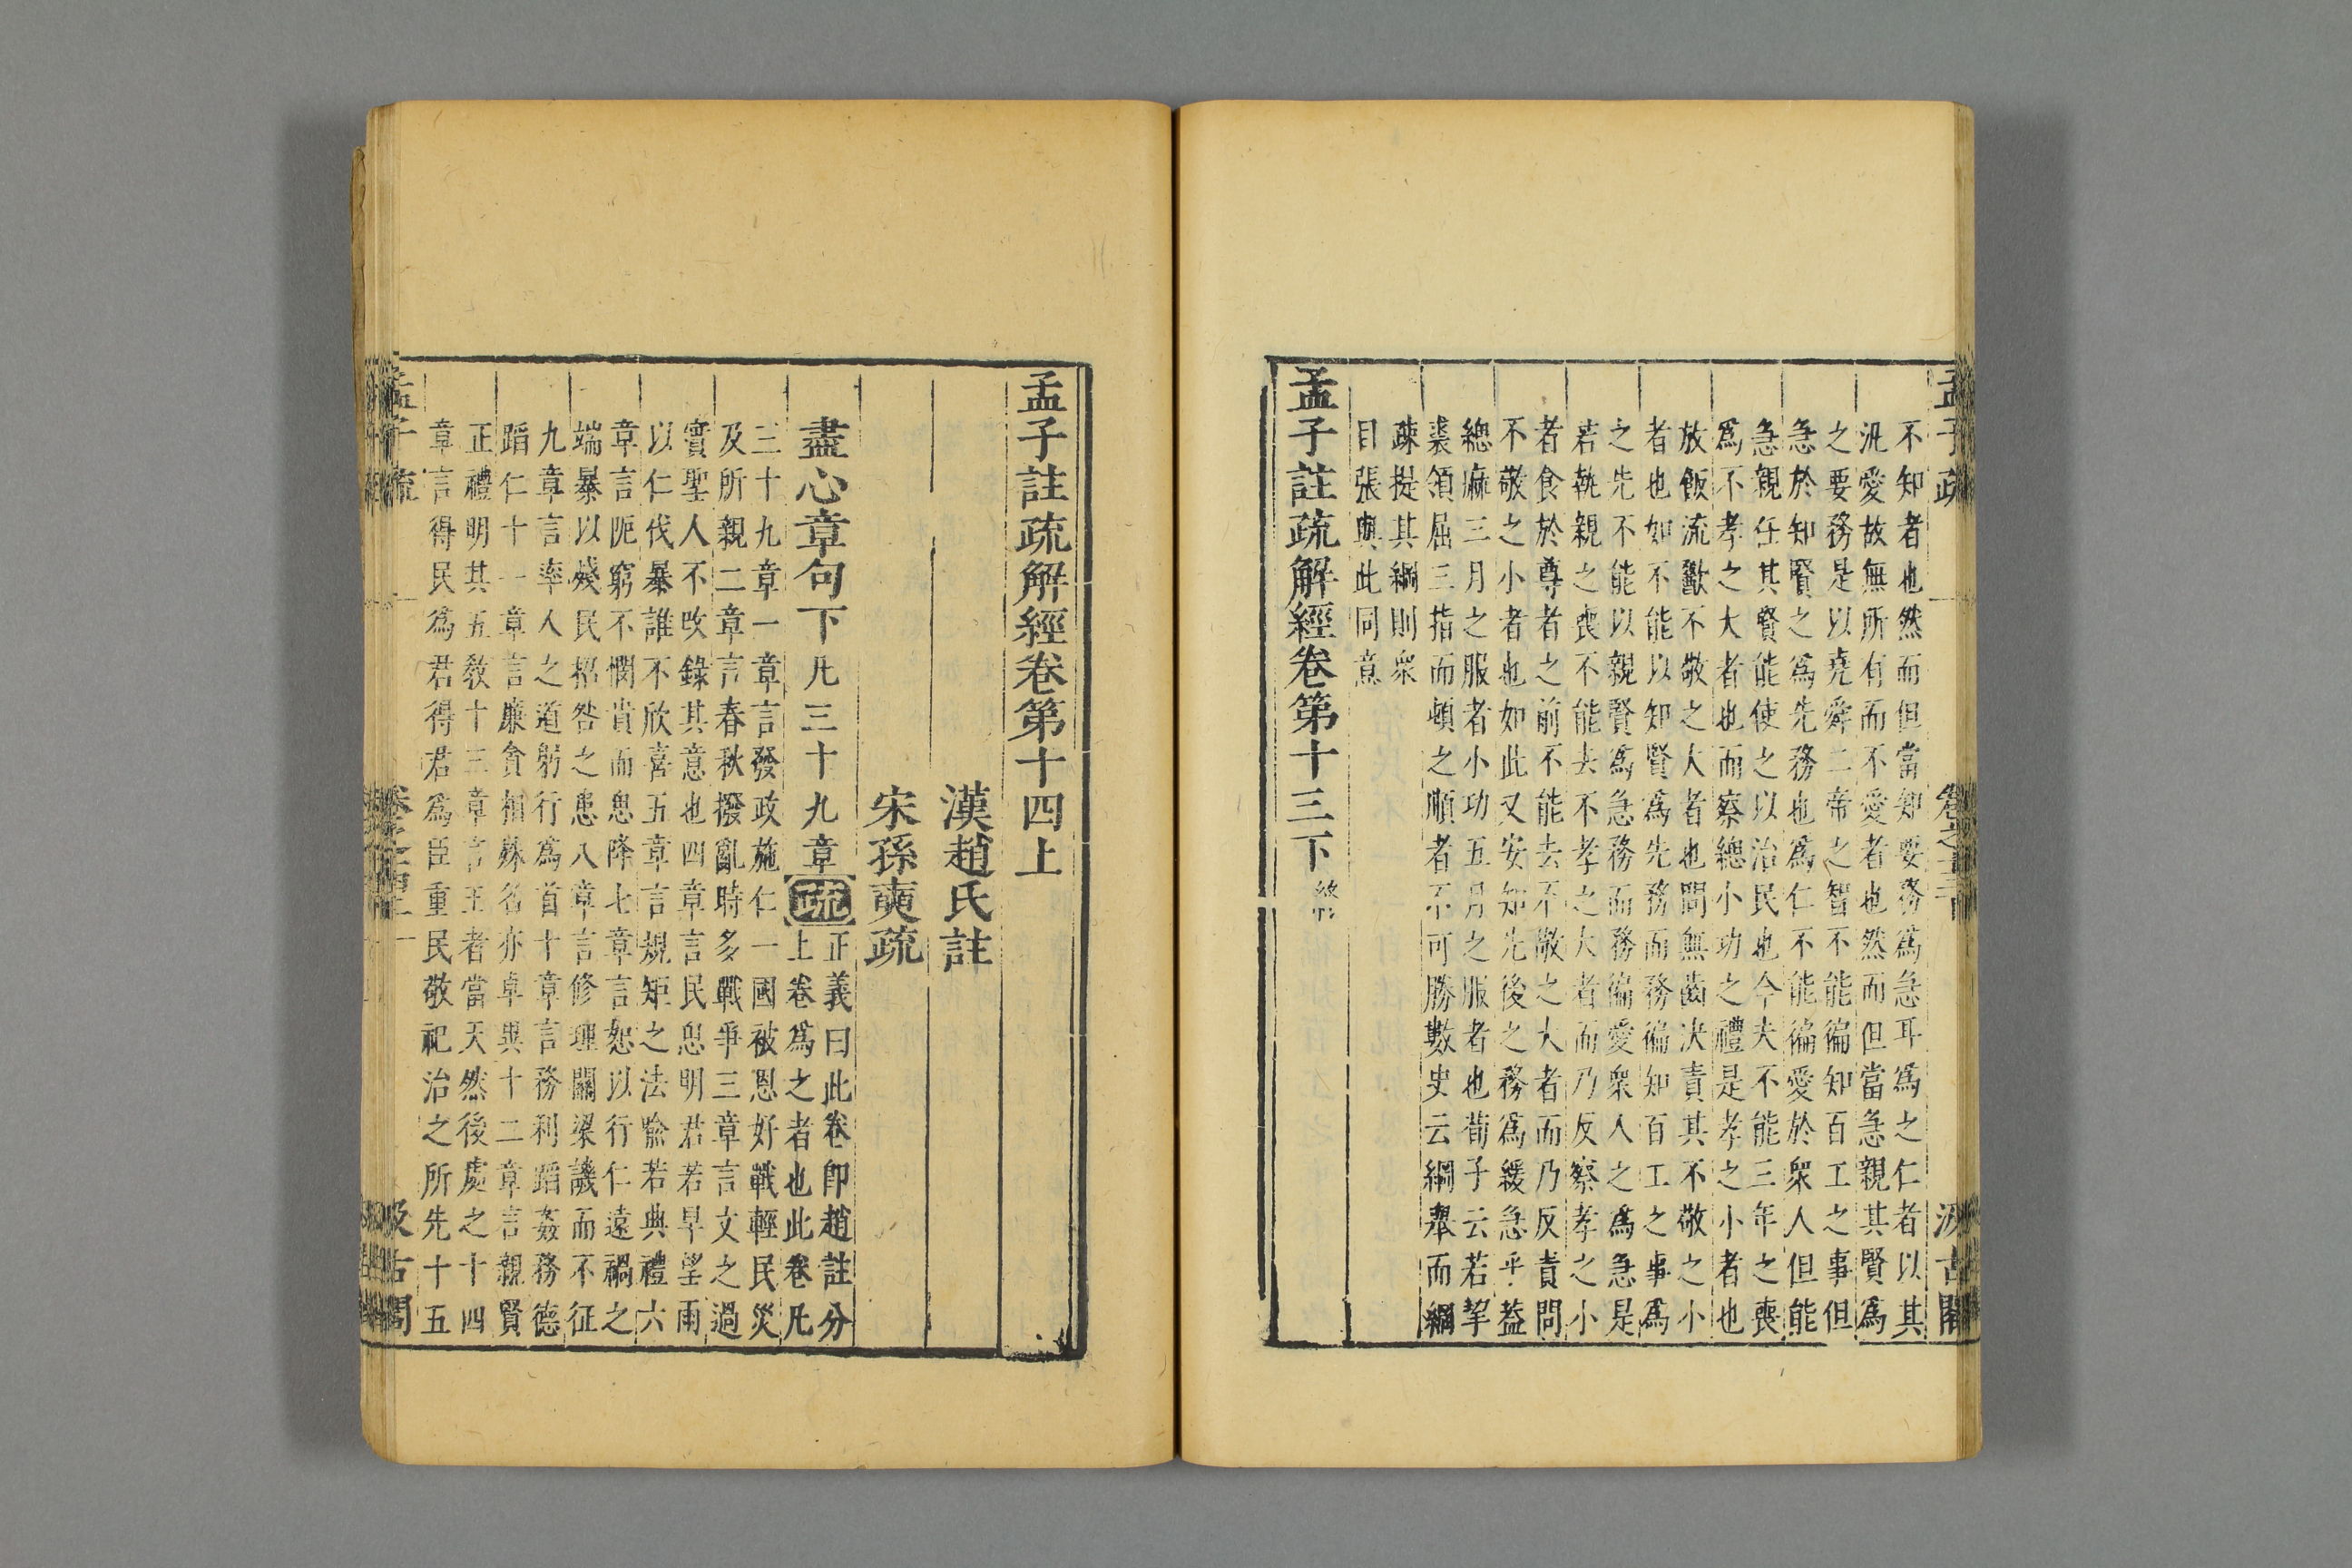 孟子疏
卷之十三下
汲古閣
不知者也然而但當知要務爲急耳爲之仁者以其
汎愛故無所有而不愛者也然而但當急親其賢爲
之要務是以堯舜二帝之智不能徧知百工之事但
急於知賢之爲先務也爲仁不能徧愛於衆人但能
急親任其賢能使之以治民也今夫不能三年之喪
爲不孝之大者也而察緦小功之禮是孝之小者也
放飯流歠不敬之大者也問無齒决責其不敬之小
者也如不能以知賢爲先務而務徧知百工之事爲
之先不能以親賢爲急務而務徧愛衆人之爲急是
若執親之喪不能去不孝之大者而乃反察孝之小
者食於尊者之前不能去不敬之大者而乃反責問
不敬之小者也如此又安知先後之務爲緩急乎蓋
緦麻三月之服者小功五月之服者也荀子云若挈
裘領屈三指而頓之順者不可勝數史云綱舉而綱
疎提其綱則衆
目張與此同意
孟子註疏解經卷第十三下 終
孟子註疏解經卷第十四上
漢趙氏註
宋孫奭疏
盡心章句下 凡三十九章 疏 正義曰此卷卽趙註分
上卷爲之者也此卷凡
三十九章一章言發政施仁一國被恩好戰輕民災
及所親二章言春秋撥亂時多戰爭三章言文之過
實聖人不攺錄其意也四章言民思明君若旱望雨
以仁伐暴誰不欣喜五章言規矩之法喩若典禮六
章言阨窮不憫貴而思降七章言恕以行仁遠禍之
端暴以殘民招咎之患八章言修理關梁譏而不征
九章言率人之道躬行爲首十章言務利蹈姦務德
蹈仁十一章言廉貪相殊名亦卓異十二章言親賢
正禮明其五敎十三章言王者當天然後處之十四
章言得民爲君得君爲臣重民敬祀治之所先十五
孟子疏
卷之十四上
汲古閣